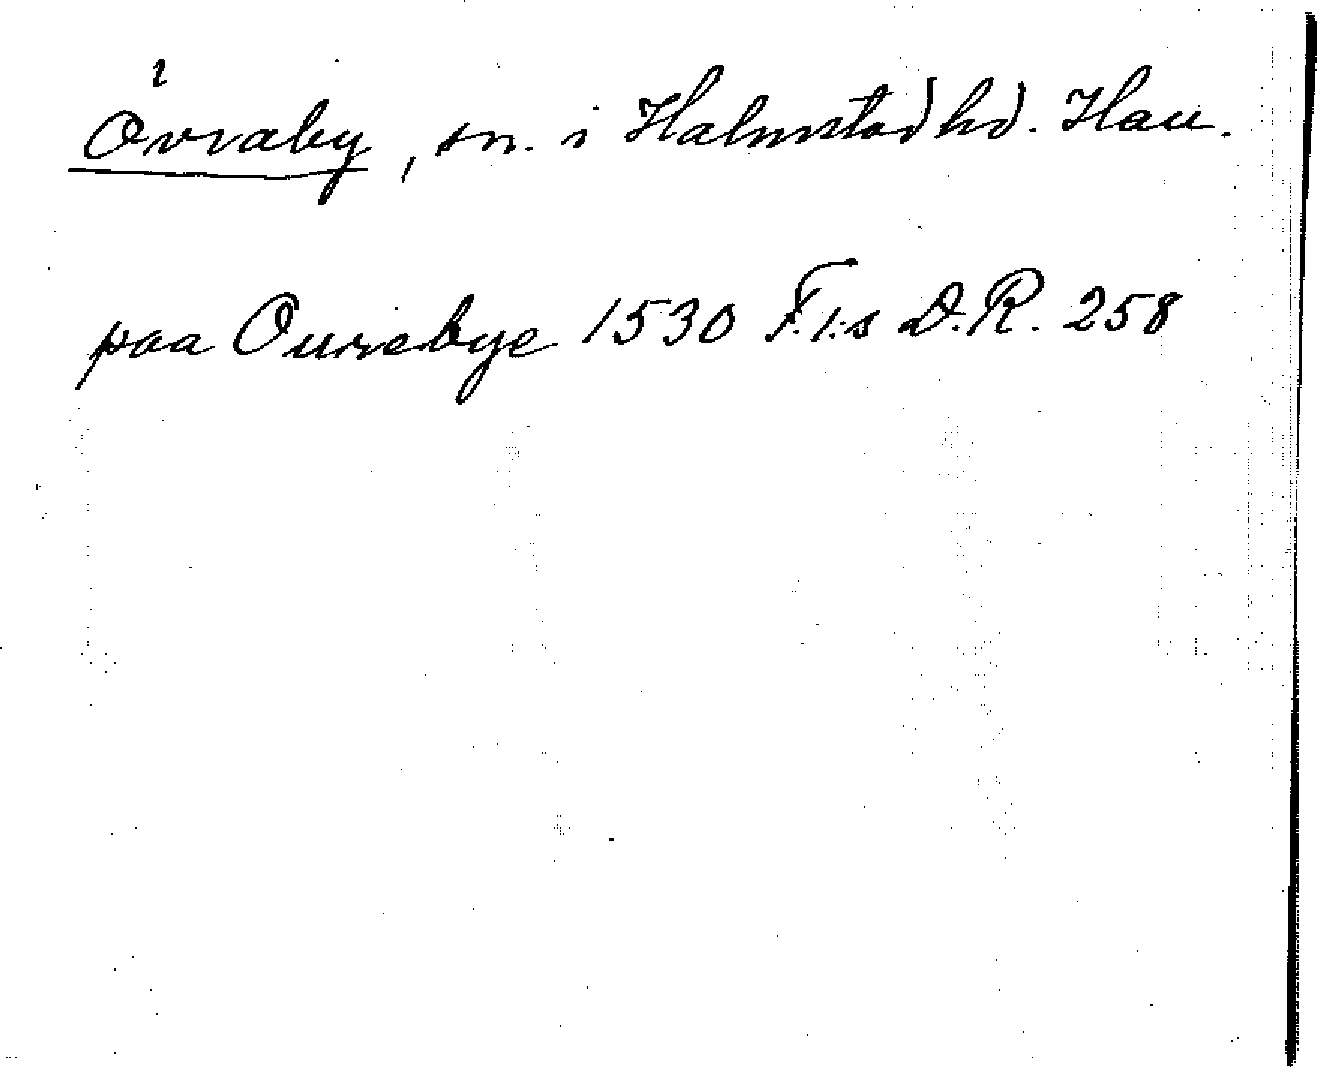 Övraby, sn. i Halmstad hd. Hall.
paa Ourrebye 1530 F.1:s D.R. 258